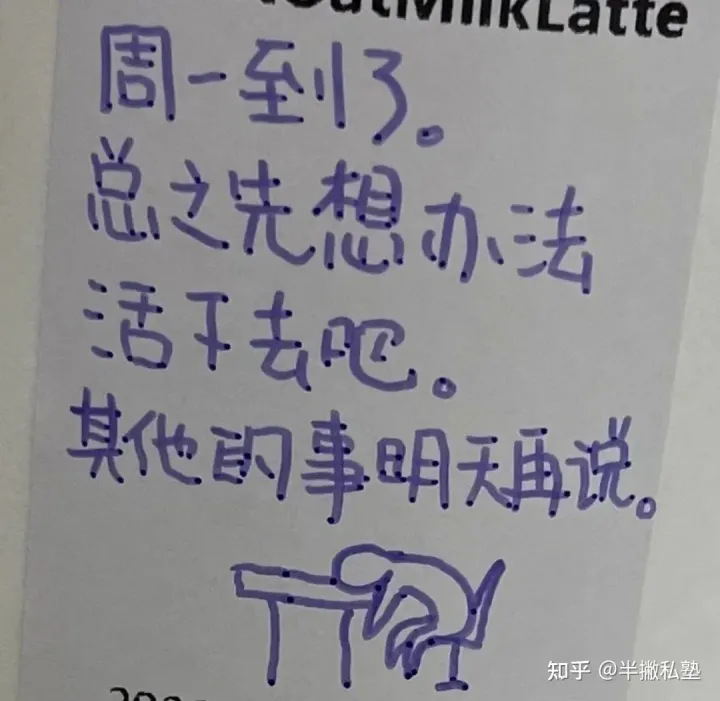 OatMilkLatte
周一到了。
总之先想办法
活下去吧。
其他的事明天再说。
知乎 @半撇私塾